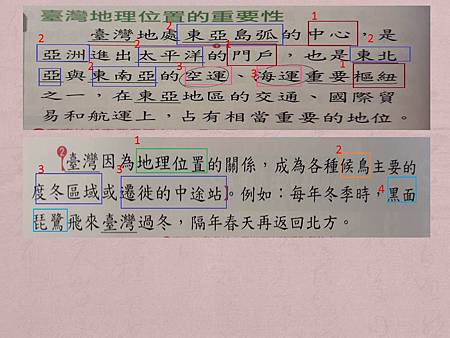 臺灣地理位置的重要性
臺灣地處東亞島弧的中心，是
亞洲進出太平洋的門戶，也是東北
亞與東南亞的空運、海運重要樞紐
之一，在東亞地區的交通、國際貿
易和航運上，占有相當重要的地位。
臺灣因為地理位置的關係，成為各種候鳥主要的
度冬區域或遷徙的中途站。例如：每年冬季時，黑面
琵鷺飛來臺灣過冬，隔年春天再返回北方。